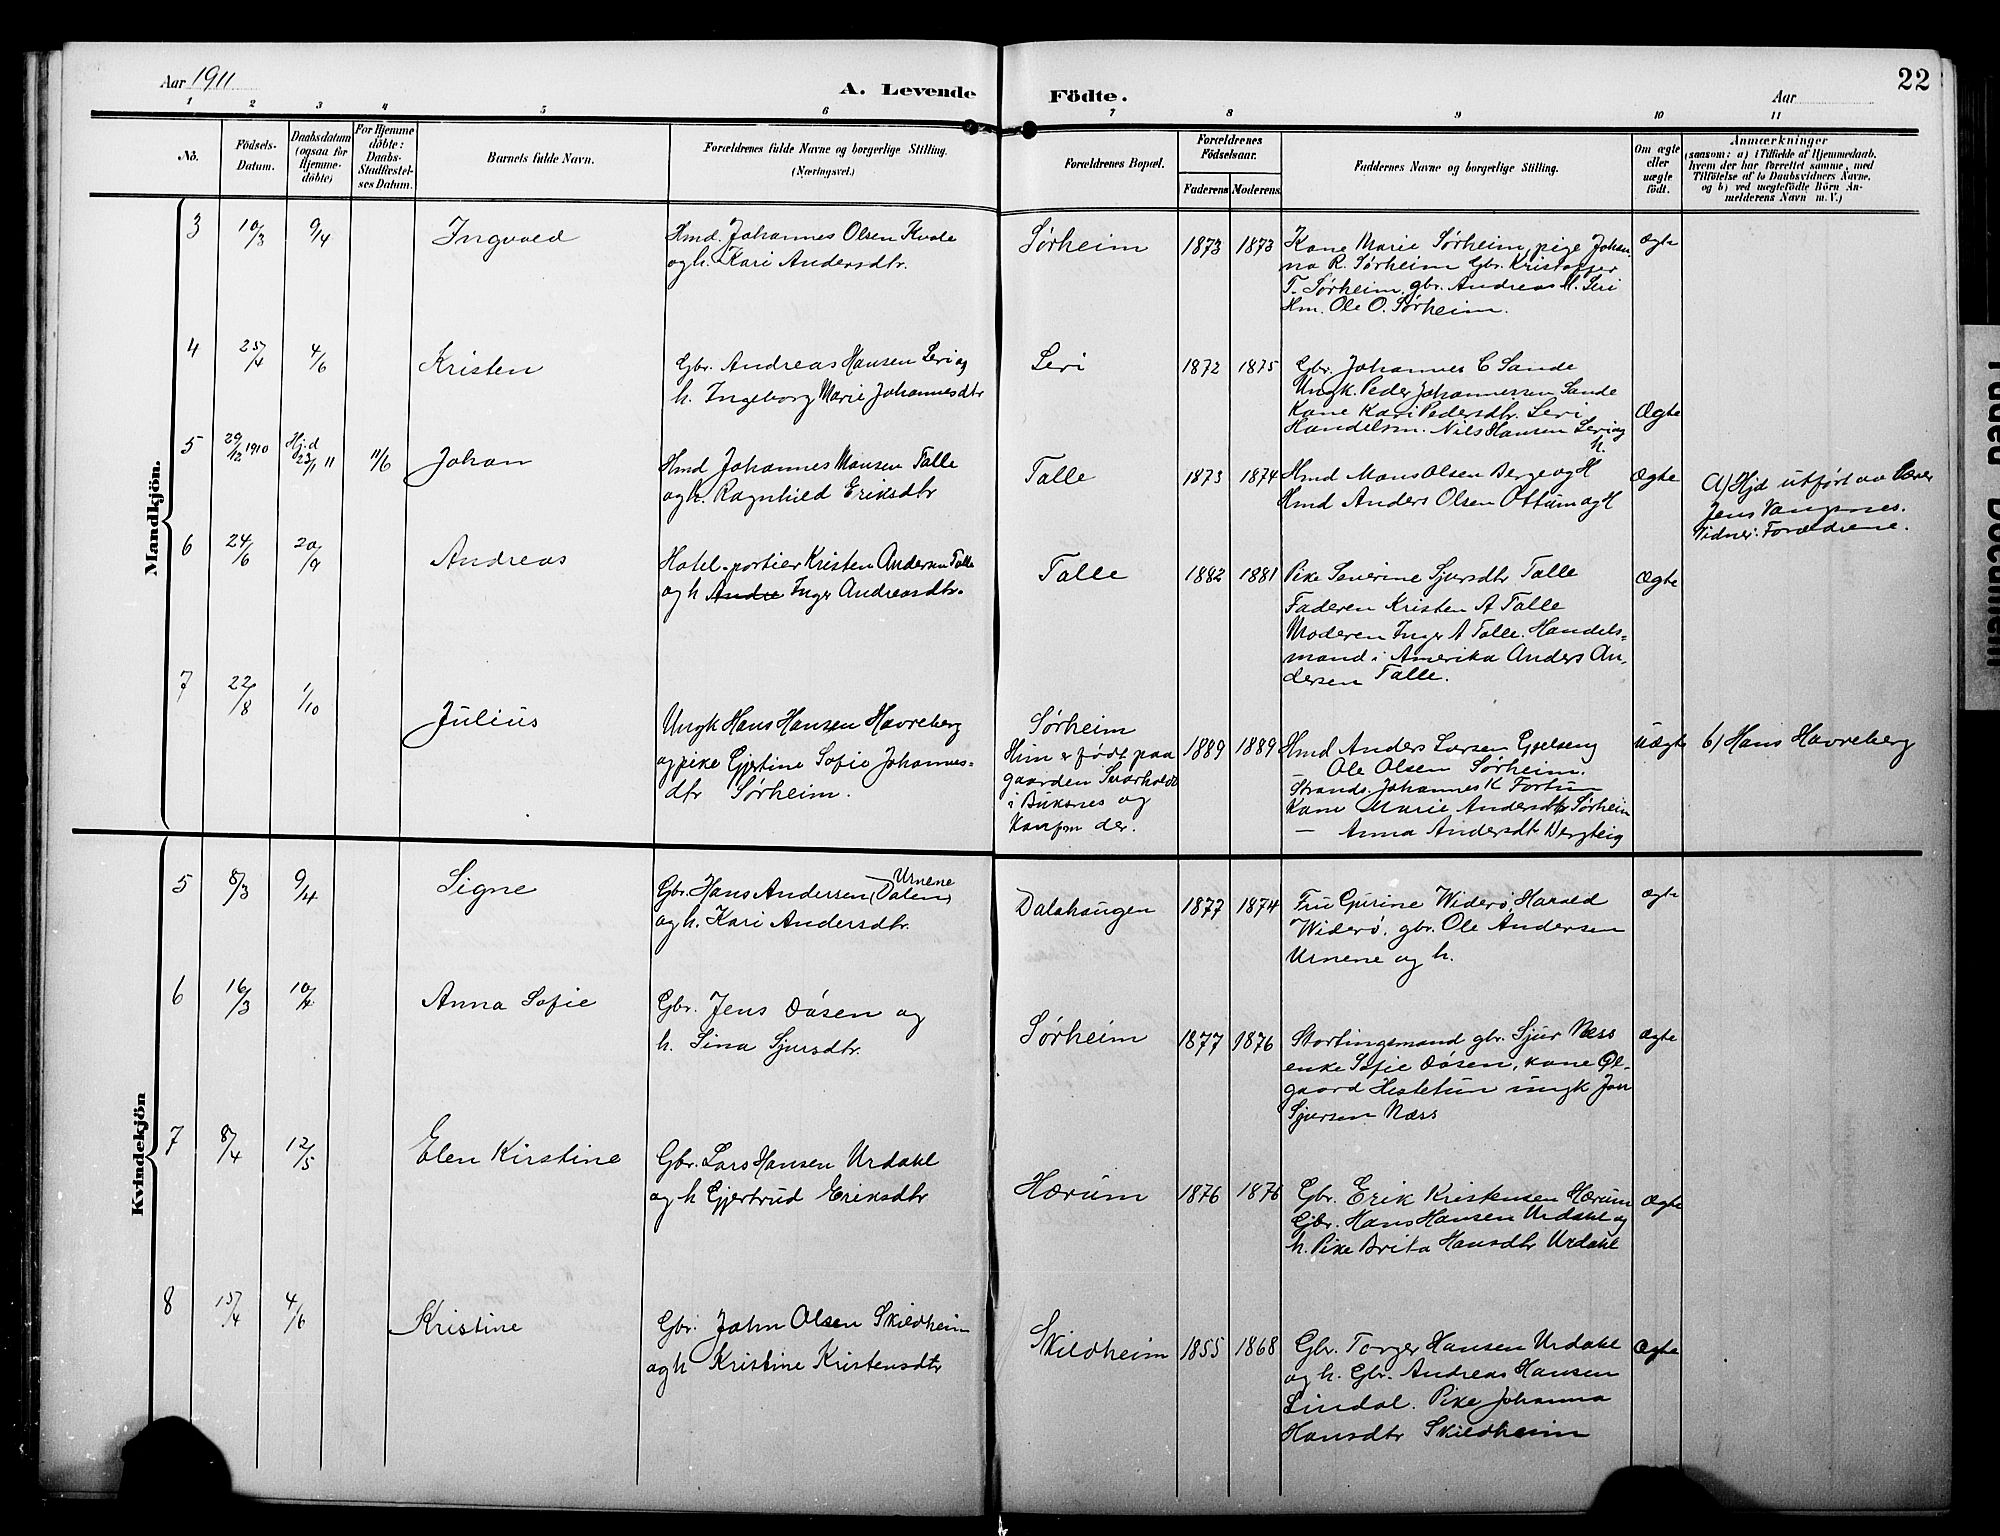 Aar 1911
A. Levende Födte.
Aar
22
1 2 3 4 5 6 7 8 9 10 11
No.
Födsels-
Datum.
Daabsdatum
(ogsaa for
Hjemme-
döbte)
For Hjemme
döbte:
Daabs-
Stadfæstel-
ses Datum.
Barnets fulde Navn.
Forældrenes fulde Navne og borgerlige Stilling.
(Næringsvei.)
Forældrenes Bopæl.
Forældrenes
Födselsaar.
Faderens
Moderens.
Faddernes Navne og borgerlige Stilling.
Om ægte
eller
uægte
födt.
Anmærkninger
(saasom: a) i Tilfælde af Hjemmedaab,
hvem der har forrettet samme, med
Tilföielse af to Daabsvidners Navne,
og b) ved uægtefödte Börn An-
melderens Navn m. V.)
Mandkjön.
3 10/3 9/4 Ingvald
Hmd. Johannes Olsen Kvale
og h. Kari Andersdtr.
Sørheim 1873 1873
Kone Marie Sørheim, pige Johan-
na R. Sørheim Gbr. Kristoffer
T. Sørheim, gbr. Andreas M. Leri
Hm. Ole O. Sørheim.
Ægte
4 25/4 4/6 Kristen
Gbr. Andreas Hansen Leri og
h. Ingeborg Marie Johannesdtr
Leri 1872 1875
Gbr. Johannes C Sande
Ungk. Peder Johannessen Sande
Kone Kari Pedersdtr. Leri
Handelsm. Nils Hansen Leri og
h.
Ægte
5 29/12 1910 Hjd 23/1 11 11/6 Johan
Hmd Johannes Monsen Talle
og h. Ragnhild Eriksdtr
Talle 1873 1874
Hmd Mons Olsen Berge og H
Hmd Anders Olsen Ottum og H
Ægte
a) Hjd utført av Lærer
Jens Vangsnes.
Vidner: Forældrene.
6 24/6 20/9 Andreas
Hotel-portier Kristen Andersen Talle
og h Andre Inger Andreasdtr.
Talle 1882 1881
Pike Severine Sjursdtr Talle
Faderen Kristen A Talle
Moderen Inger A Talle. Handels-
mand i Amerika Anders An-
dersen Talle.
Ægte
7 22/8 1/10 Julius
Ungk Hans Hansen Havreberg
og pike Gjertine Sofie Johannes-
dtr Sørheim.
Sørheim
Hun er født paa
gaarden Svarholdt
i Buksnes og
konfm der.
1889 1889
Hmd Anders Larsen Gjelseng
Ole Olsen Sørheim.
Strands. Johannes K Fortun
Kone Marie Andersdtr Sørheim
— Anna Andersdtr Bergteig
Uægte
b) Hans Havreberg
Kvindekjön
5 8/3 9/4 Signe
Urnene
Gbr. Hans Andersen (Dalen)
og h. Kari Andersdtr.
Dalshaugen 1877 1874
Fru Gurine Widerø, Harald
Widerø, gbr. Ole Andersen
Urnene og h.
Ægte
6 16/3 10/4 Anna Sofie
Gbr. Jens Døsen og
h. Sina Sjursdtr.
Sørheim 1877 1876
Stortingsmand gbr. Sjur Næss
enke Sofie Døsen, kone Øl-
gaard Hestetun ungk Jon
Sjursen Næss
Ægte
7 8/4 12/5 Elen Kirstine
Gbr. Lars Hansen Urdahl
og h Gjertrud Eriksdtr
Hærum 1876 1876
Gbr. Erik Kristensen Hærum
Gbr. Hans Hansen Urdahl og
h. Pike Brita Hansdtr Urdahl
Ægte
8 15/4 4/6 Kristine
Gbr. John Olsen Skildheim
og h Kristine Kristensdtr
Skildheim 1855 1868
Gbr. Torger Hansen Urdahl
og h. Gbr. Andreas Hansen
Lindal. Pike Johanna
Hansdtr Skildheim
Ægte